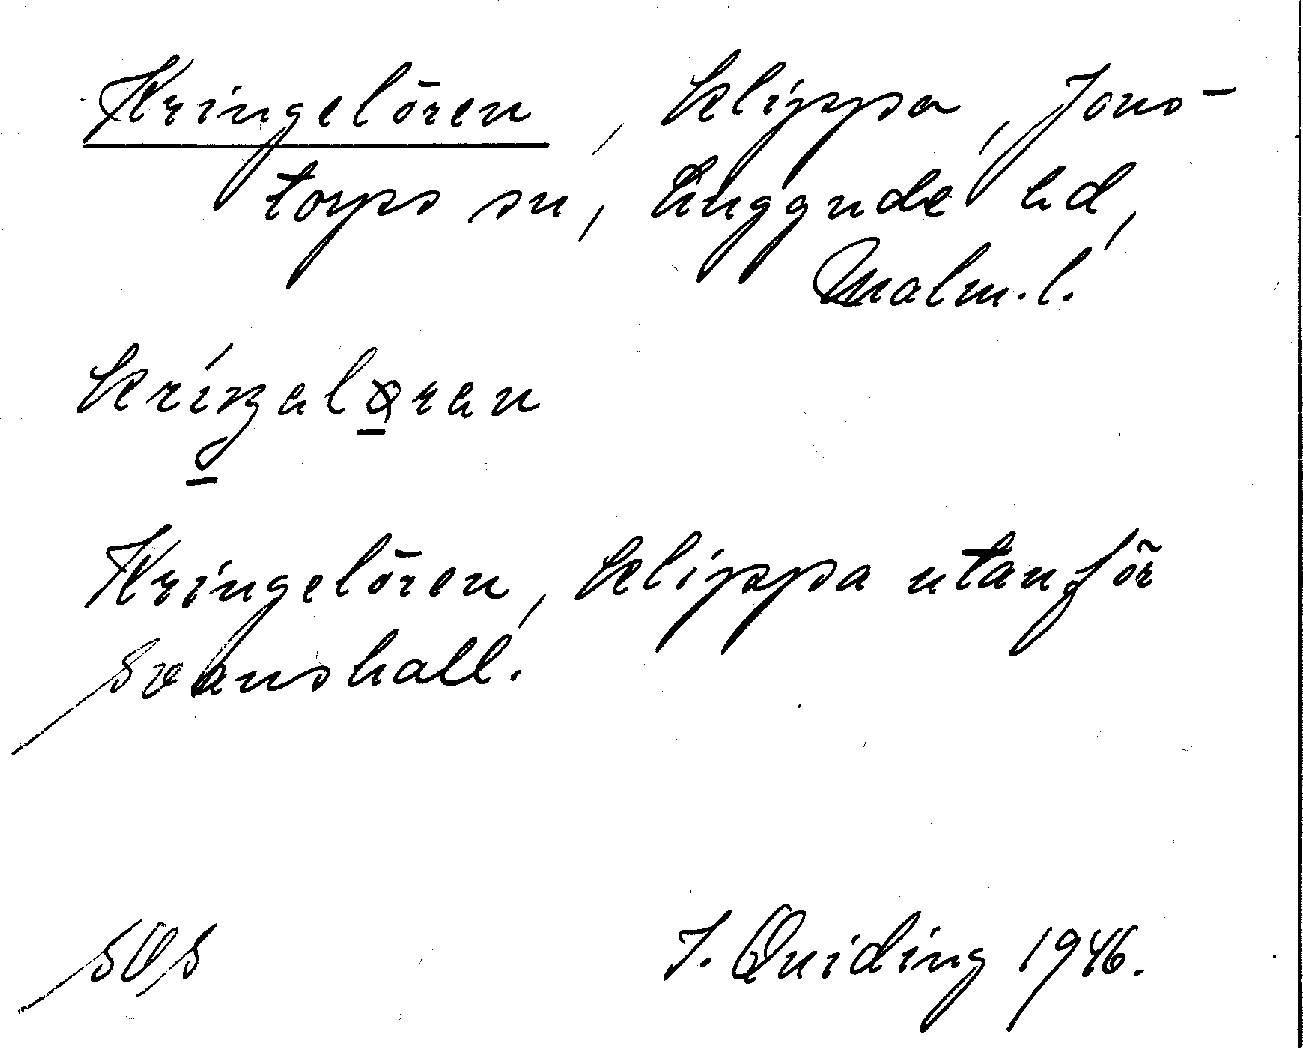 Kringelören, klippa, Jons-
torps sn, Luggude hd,
Malm. l.
Kringelören, klippa utanför
Svanshall.
SOS I. Quiding 1946.